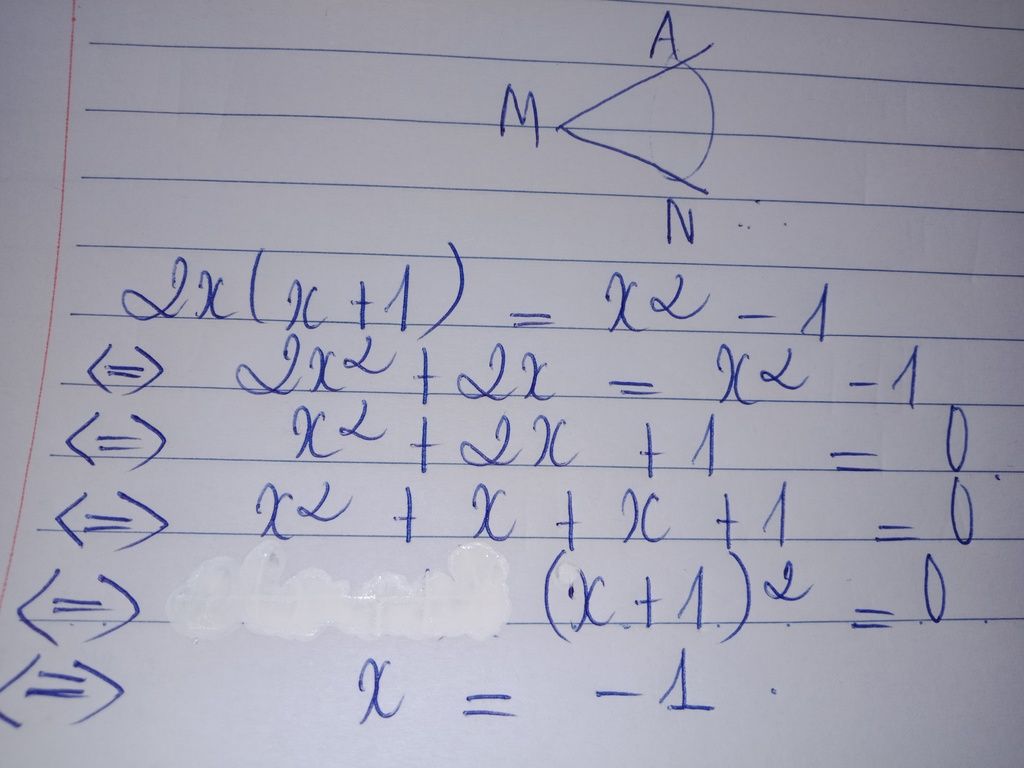 A
M
N
2x(x+1) = x² - 1
<=> 2x² + 2x = x² - 1
<=> x² + 2x + 1 = 0
<=> x² + x + x + 1 = 0
<=> (x+1)² = 0
<=> x = -1